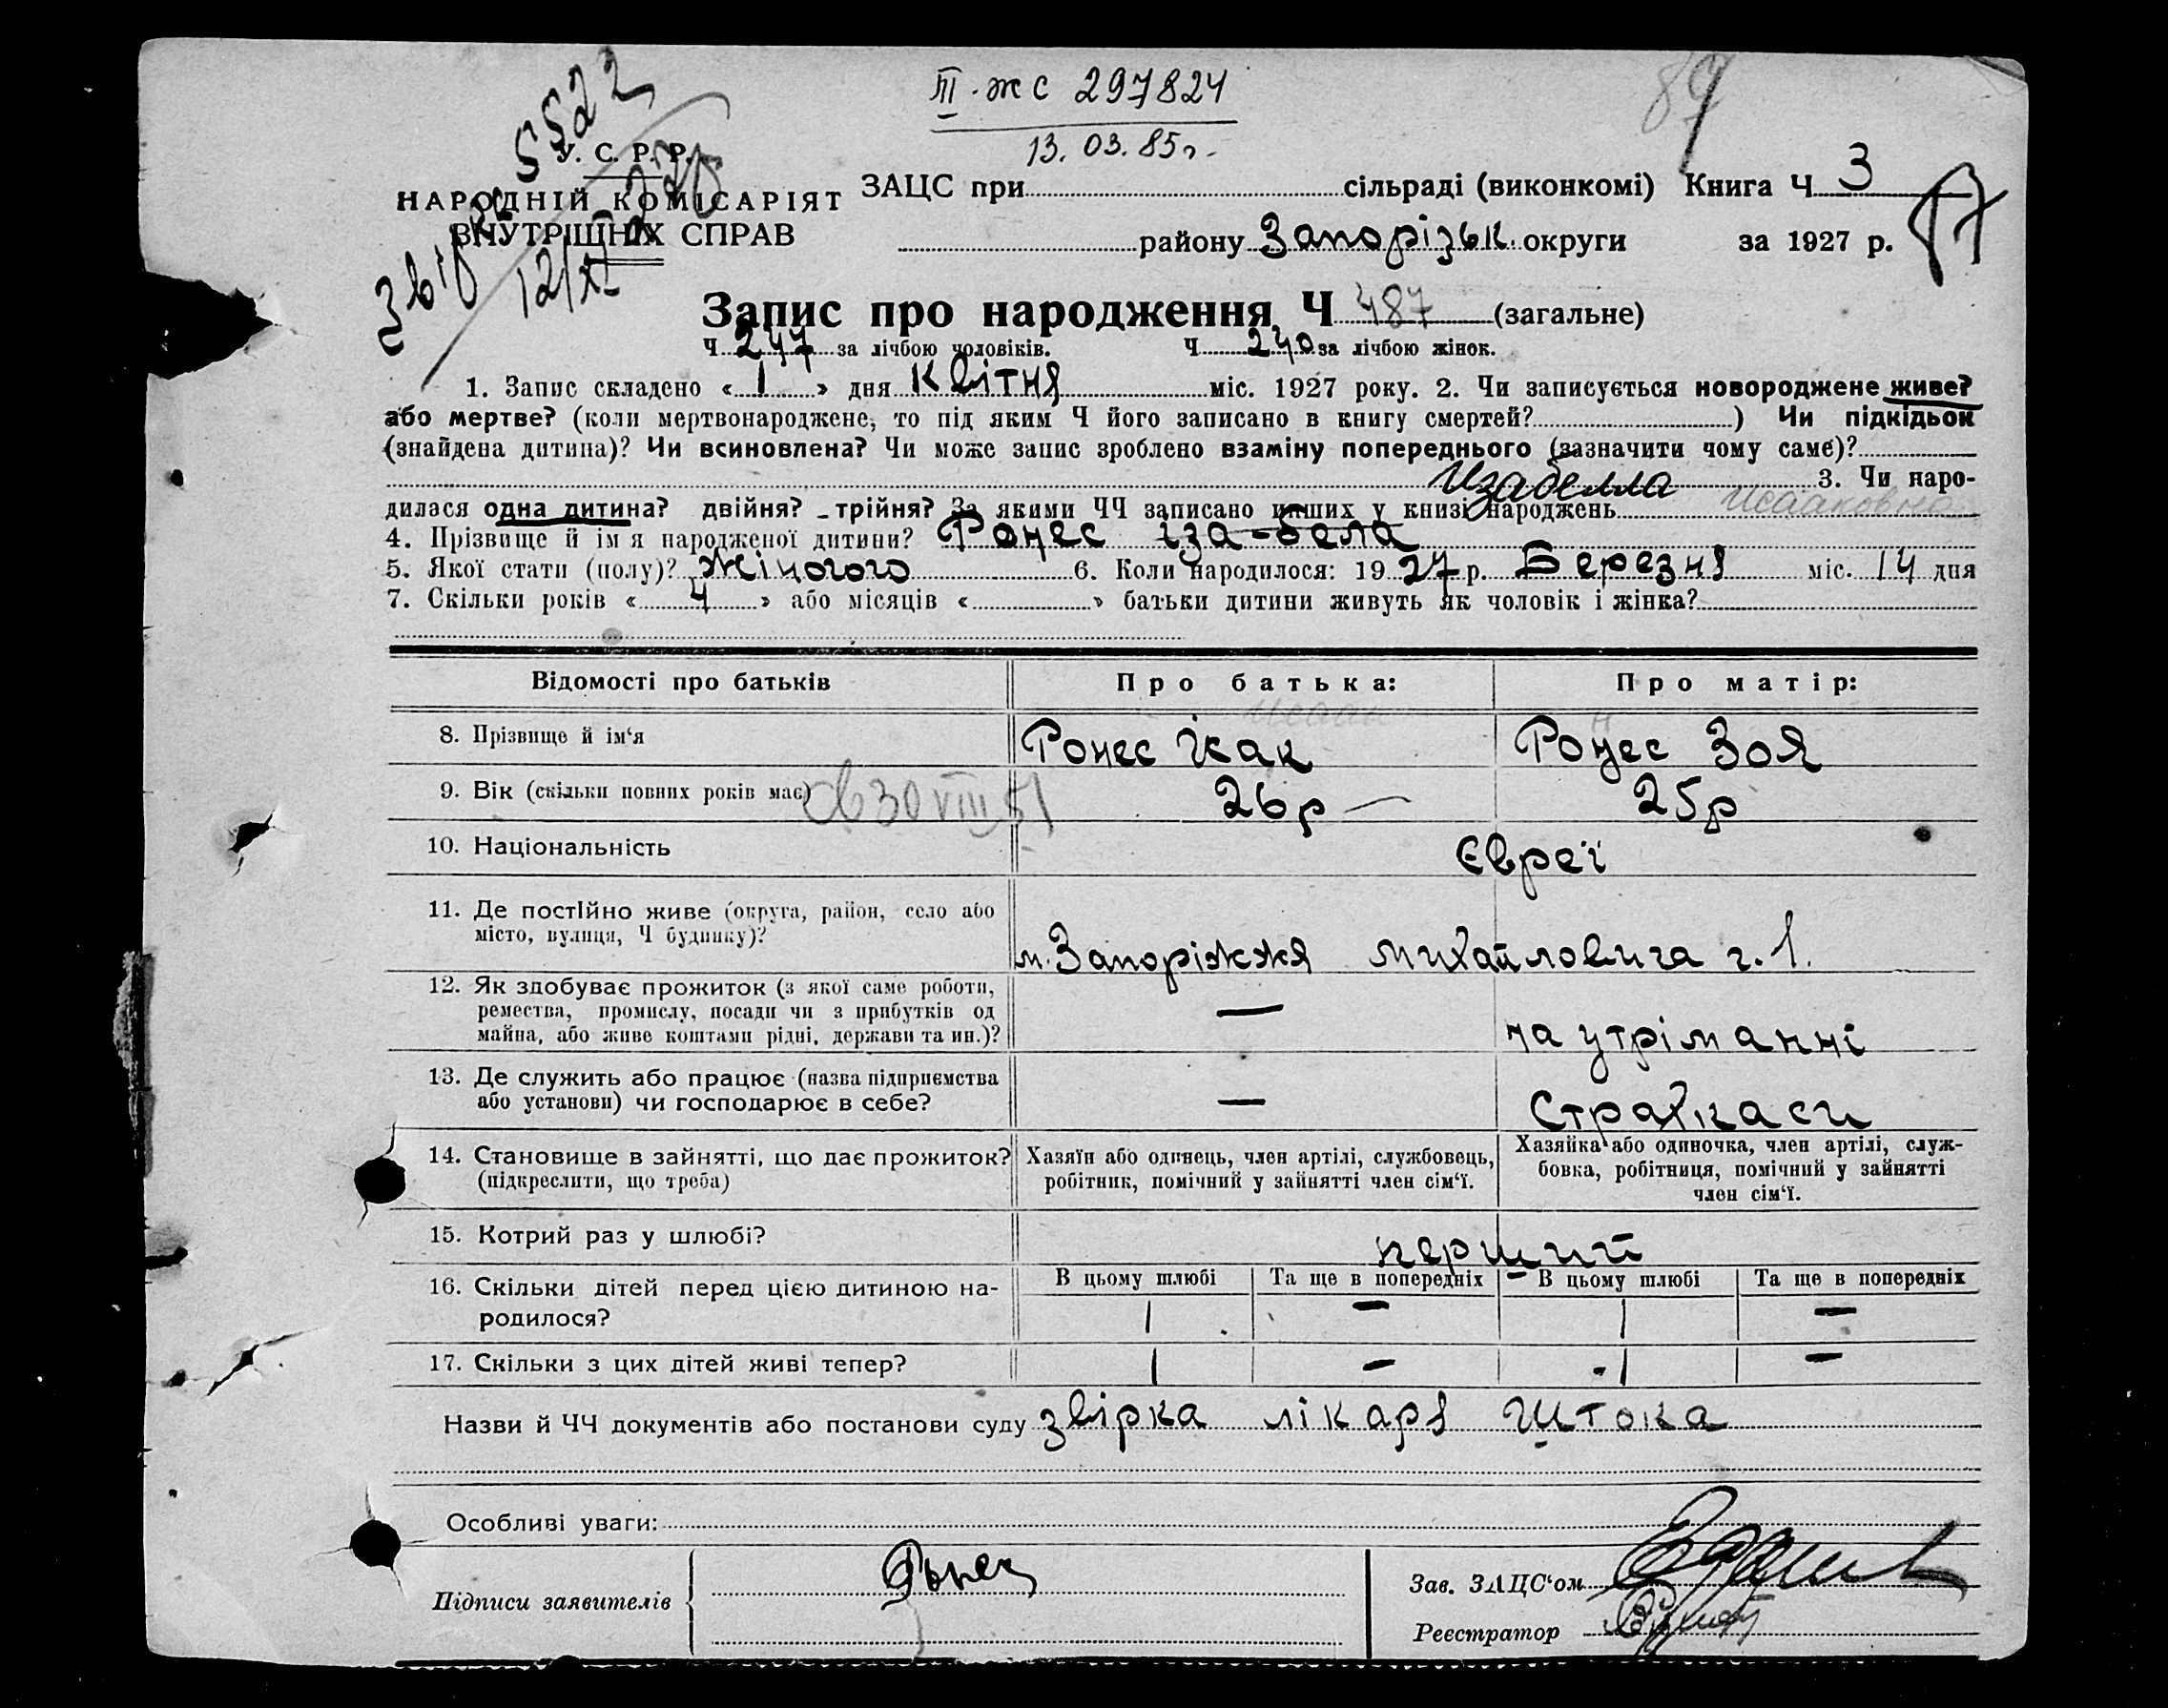 5522
III-ЖС 297824
13.03.85г.
87
У. С. Р. Р.
НАРОДНІЙ КОМІСАРІЯТ
ВНУТРІШНІХ СПРАВ
12/XI
ЗАЦС при сільраді (виконкомі) Книга Ч 3
району Запорізьк. округи за 1927 р. 87
Запис про народження Ч 487 (загальне)
Ч 247 за лічбою чоловіків. Ч 240 за лічбою жінок.
1. Запис складено « 1 » дня Квітня міс. 1927 року. 2. Чи записується новороджене живе?
або мертве? (коли мертвонароджене, то під яким Ч його записано в книгу смертей? ) Чи підкідьок
(знайдена дитина)? Чи всиновлена? Чи може запис зроблено взаміну попереднього (зазначити чому саме)?
Изабелла 3. Чи наро-
дилася одна дитина? двійня? трійня? За якими ЧЧ записано инших у книзі народжень Исааковна
4. Прізвище й ім'я народженої дитини? Ронес Іза-бела
5. Якої статі (полу)? Жіночого 6. Коли народилося: 1927 р. Березня міс. 14 дня
7. Скільки років « 4 » або місяців « » батьки дитини живуть як чоловік і жінка?
Відомості про батьків Про батька: Про матір:
Исаак н
8. Прізвище й ім'я Ронес Ісак Ронес Зоя
9. Вік (скільки повних років має) св 30 VIII 51 26р — 25р
10. Національність Євреї
11. Де постійно живе (округа, район, село або
місто, вулиця, Ч будинку)? м. Запоріжжя Михайловича г. 1.
12. Як здобуває прожиток (з якої саме роботи,
ремества, промислу, посади чи з прибутків од
майна, або живе коштами рідні, держави та ин.)? — на утріманні
13. Де служить або працює (назва підприємства
або установи) чи господарює в себе? — Страхкаси
14. Становище в зайнятті, що дає прожиток? (підкреслити, що треба)
Хазяїн або одинець, член артілі, службовець,
робітник, помічний у зайнятті член сім'ї.
Хазяйка або одиночка, член артілі, служ-
бовка, робітниця, помічний у зайнятті
член сім'ї.
15. Котрий раз у шлюбі? перший
16. Скільки дітей перед цією дитиною на-
родилося?
В цьому шлюбі Та ще в попередніх В цьому шлюбі Та ще в попередніх
1 — 1 —
17. Скільки з цих дітей живі тепер? 1 — 1 —
Назви й ЧЧ документів або постанови суду звірка лікаря Штока
Особливі уваги:
Підписи заявителів
Зав. ЗАЦС'ом
Реєстратор